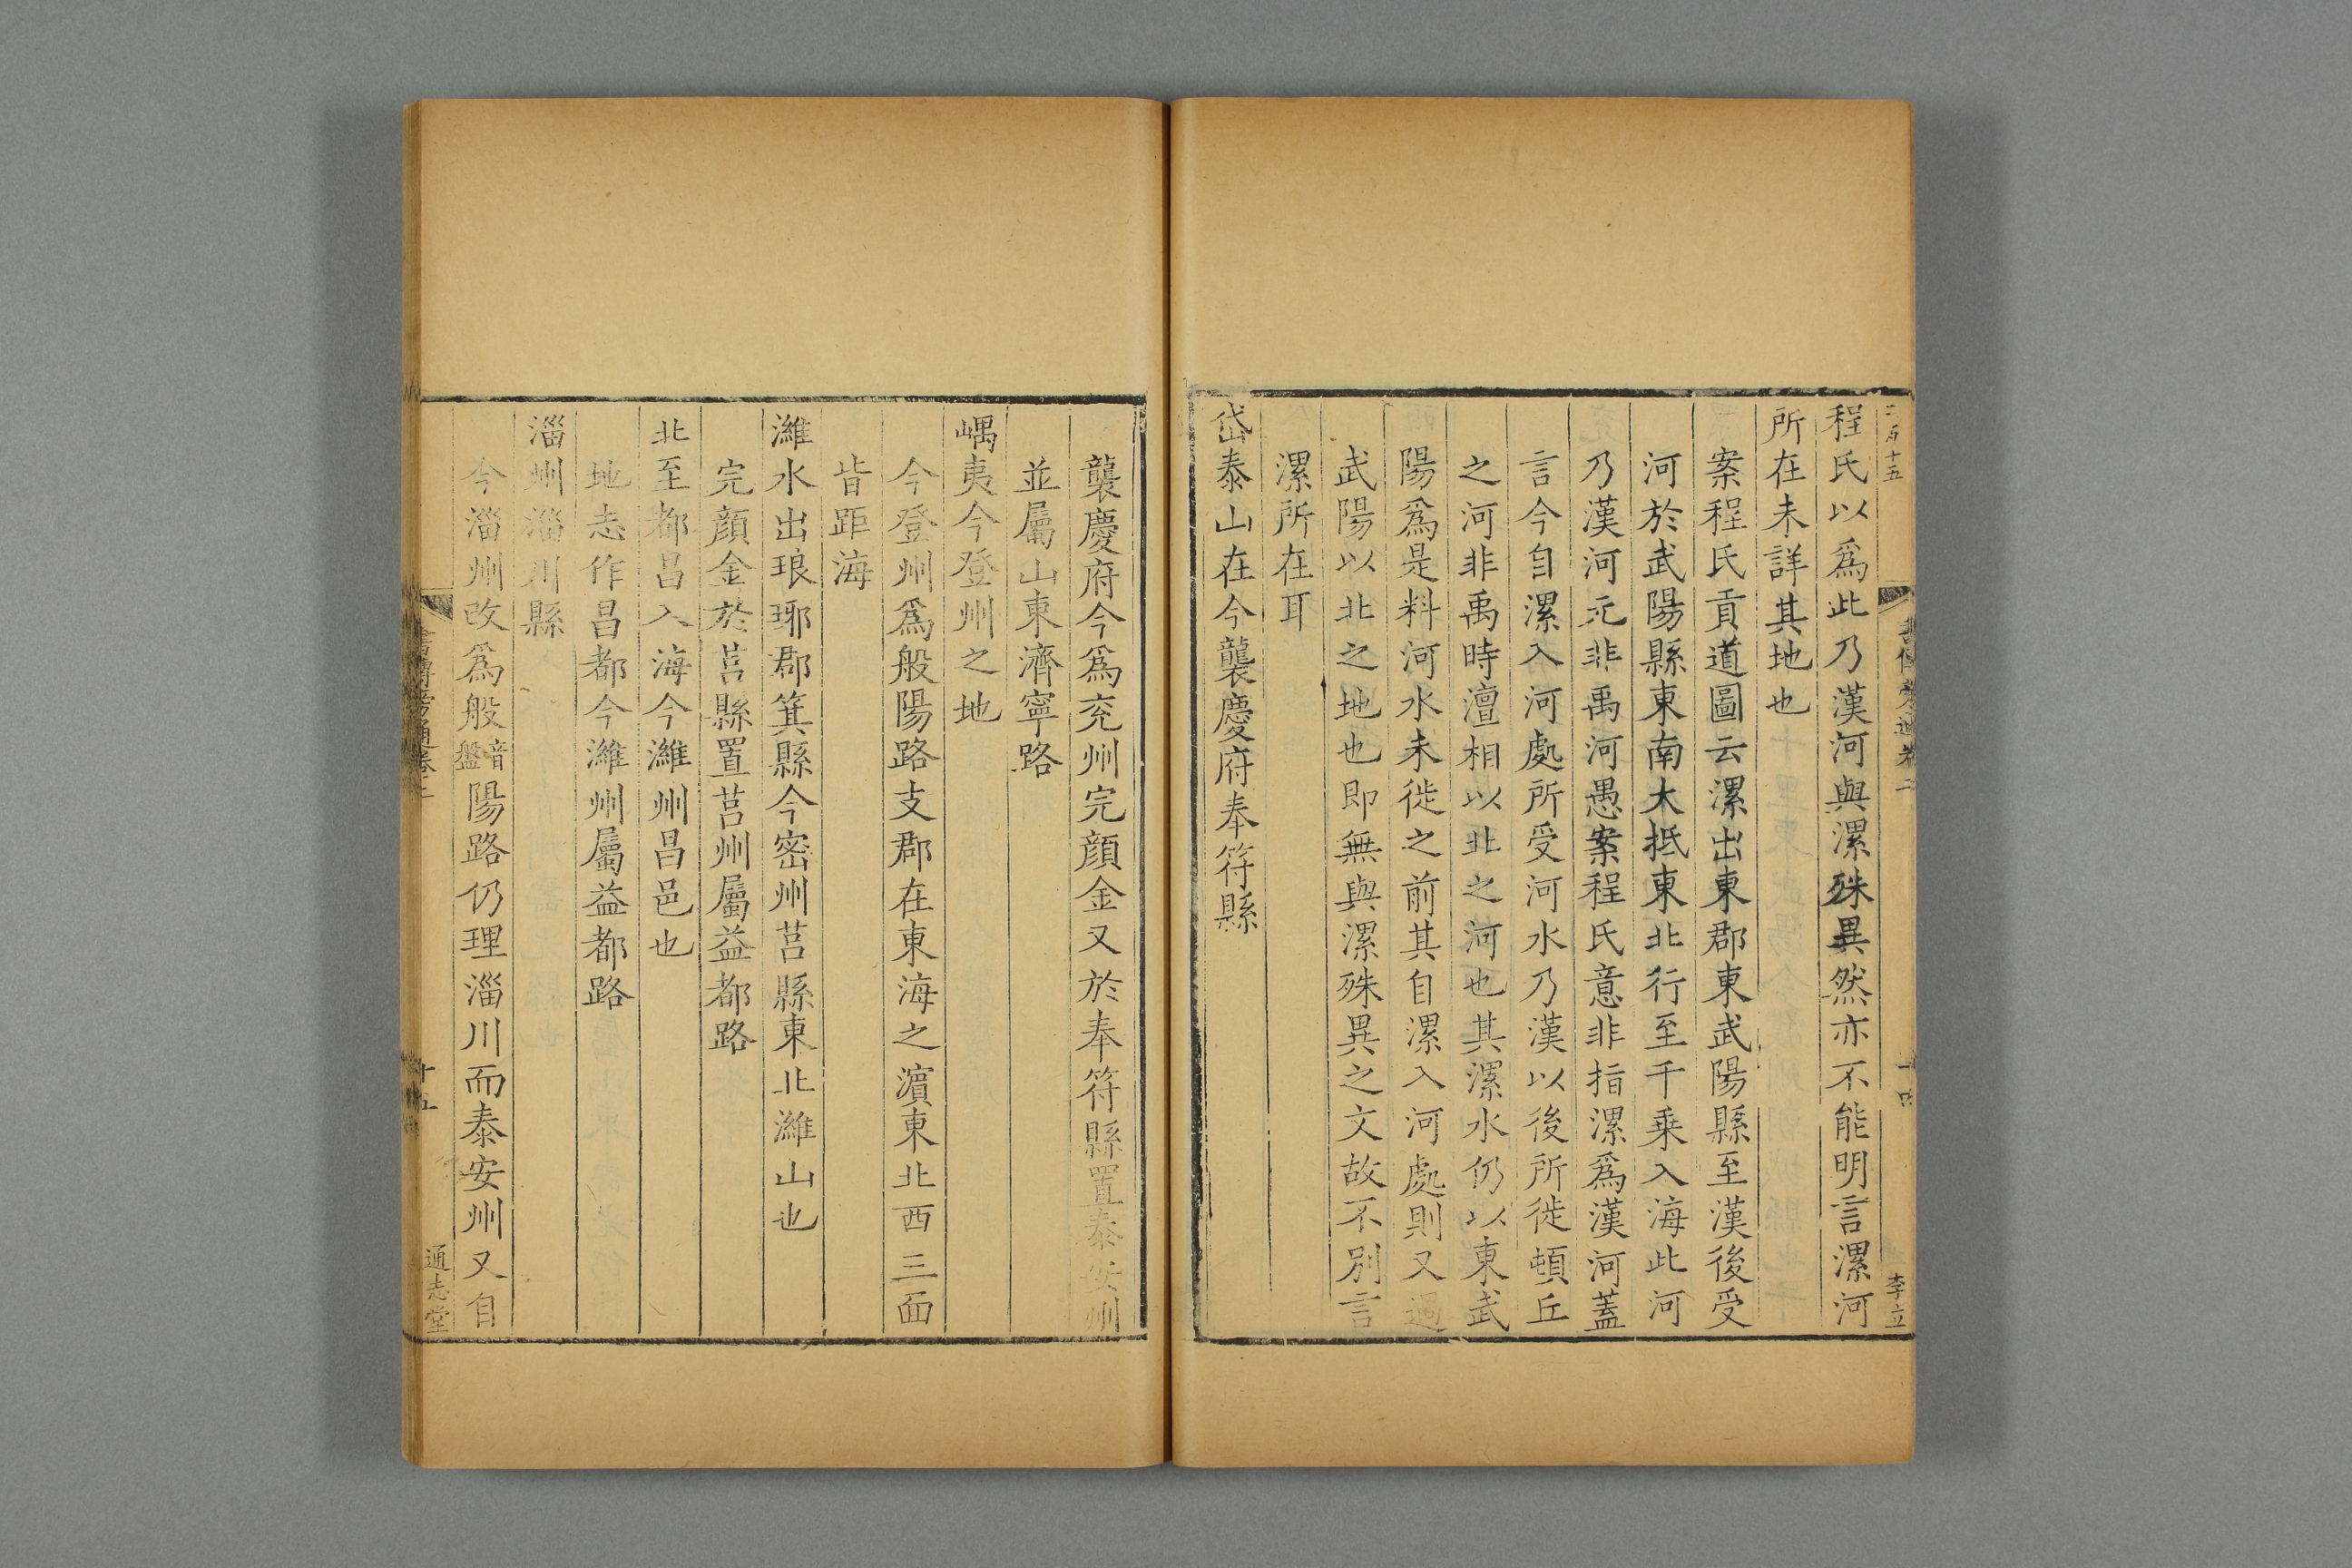 程氏以爲此乃漢河與漯殊異然亦不能明言漯河
所在未詳其地也
案程氏貢道圖云漯出東郡東武陽縣至漢後受
河於武陽縣東南大抵東北行至千乗入海此河
乃漢河元非禹河愚案程氏意非指漯爲漢河蓋
言今自漯入河處所受河水乃漢以後所徙頓丘
之河非禹時澶相以北之河也其漯水仍以東武
陽爲是料河水未徙之前其自漯入河處則又過
武陽以北之地也即無與漯殊異之文故不別言
漯所在耳
岱泰山在今襲慶府奉符縣
李立
襲慶府今爲兗州完顔金又於奉符縣置泰安州
並屬山東濟寧路
嵎夷今登州之地
今登州爲般陽路支郡在東海之濵東北西三面
皆距海
濰水出琅琊郡箕縣今密州莒縣東北濰山也
完顔金於莒縣置莒州屬益都路
北至都昌入海今濰州昌邑也
地志作昌都今濰州屬益都路
淄州淄川縣
今淄州改爲般音盤陽路仍理淄川而泰安州又自
書傳旁通卷二
十五
通志堂